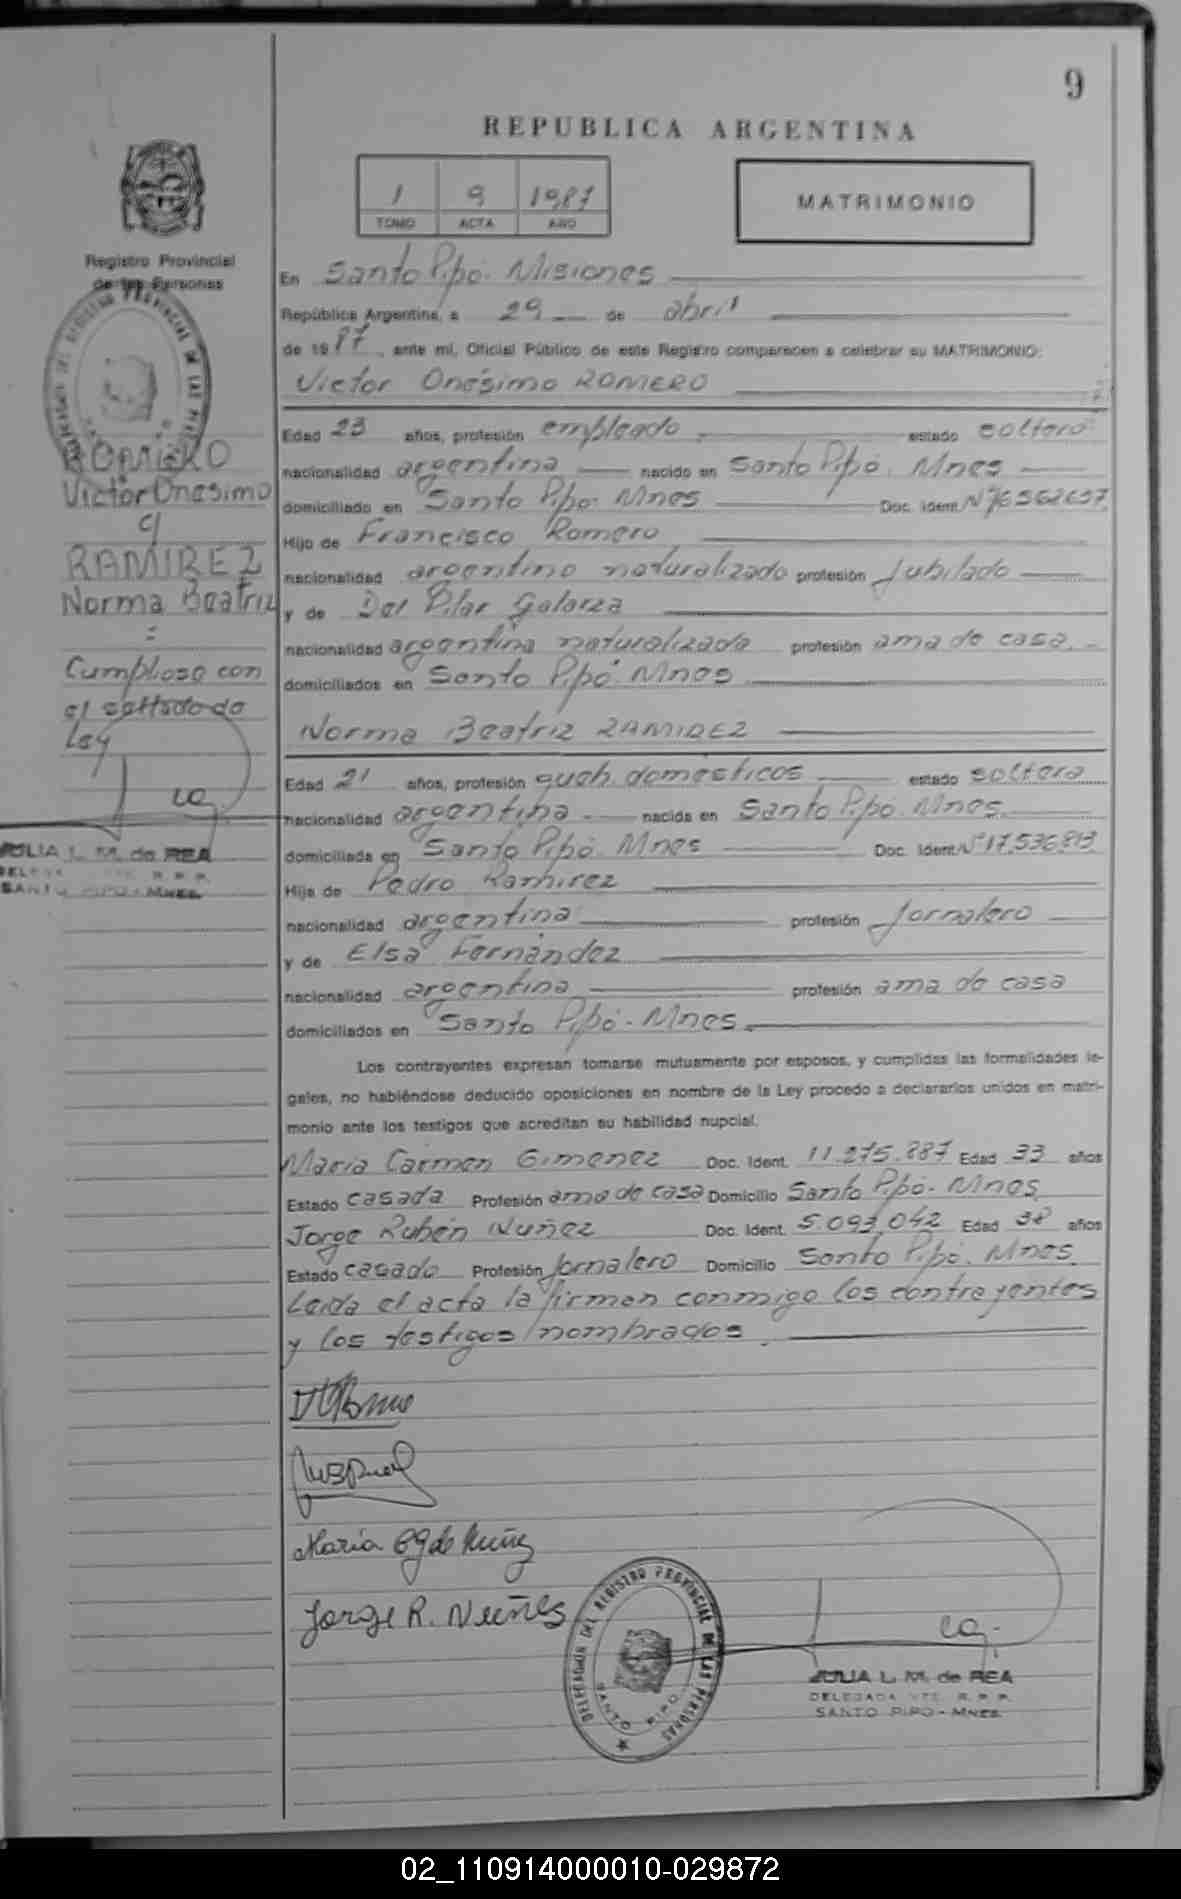 9
REPUBLICA ARGENTINA
1 9 1987
TOMO ACTA AÑO
MATRIMONIO
Registro Provincial
de las Personas
ROMERO
Victor Onesimo
c/
RAMIREZ
Norma Beatriz
Cumpliose con
el sellado de
Ley
JULIA L. M. de REA
SANTO PIPO - MNES.
En Santo Pipó. Misiones
República Argentina, a 29 de abril
de 1987, ante mí, Oficial Público de este Registro comparecen a celebrar su MATRIMONIO:
Victor Onésimo ROMERO
Edad 23 años, profesión empleado estado soltero
nacionalidad argentina nacido en Santo Pipó. Mnes
domiciliado en Santo Pipó. Mnes Doc. Ident. Nº16562657
Hijo de Francisco Romero
nacionalidad argentino naturalizado profesión Jubilado
y de Del Pilar Galarza
nacionalidad argentina naturalizada profesión ama de casa.
domiciliados en Santo Pipó. Mnes
Norma Beatriz RAMIREZ
Edad 21 años, profesión queh. domésticos estado soltera
nacionalidad argentina nacida en Santo Pipó. Mnes.
domiciliada en Santo Pipó. Mnes Doc. Ident. Nº17.536.813
Hija de Pedro Ramirez
nacionalidad argentina profesión Jornalero
y de Elsa Fernández
nacionalidad argentina profesión ama de casa
domiciliados en Santo Pipó - Mnes.
Los contrayentes expresan tomarse mutuamente por esposos, y cumplidas las formalidades le-
gales, no habiéndose deducido oposiciones en nombre de la Ley procedo a declararlos unidos en matri-
monio ante los testigos que acreditan su habilidad nupcial.
Maria Carmen Gimenez Doc. Ident. 11.275.887 Edad 33 años
Estado casada Profesión ama de casa Domicilio Santo Pipó - Mnes.
Jorge Rubén Nuñez Doc. Ident. 5.093.042 Edad 38 años
Estado casado Profesión Jornalero Domicilio Santo Pipó. Mnes.
Leída el acta la firman conmigo los contrayentes
y los testigos nombrados.
Maria Cg de Nuñez
Jorge R. Nuñes
DELEGACION DEL REGISTRO PROVINCIAL DE LAS PERSONAS
SANTO PIPO
JULIA L. M. de REA
DELEGADA VTE. R. P. P.
SANTO PIPO - MNES.
02_110914000010-029872